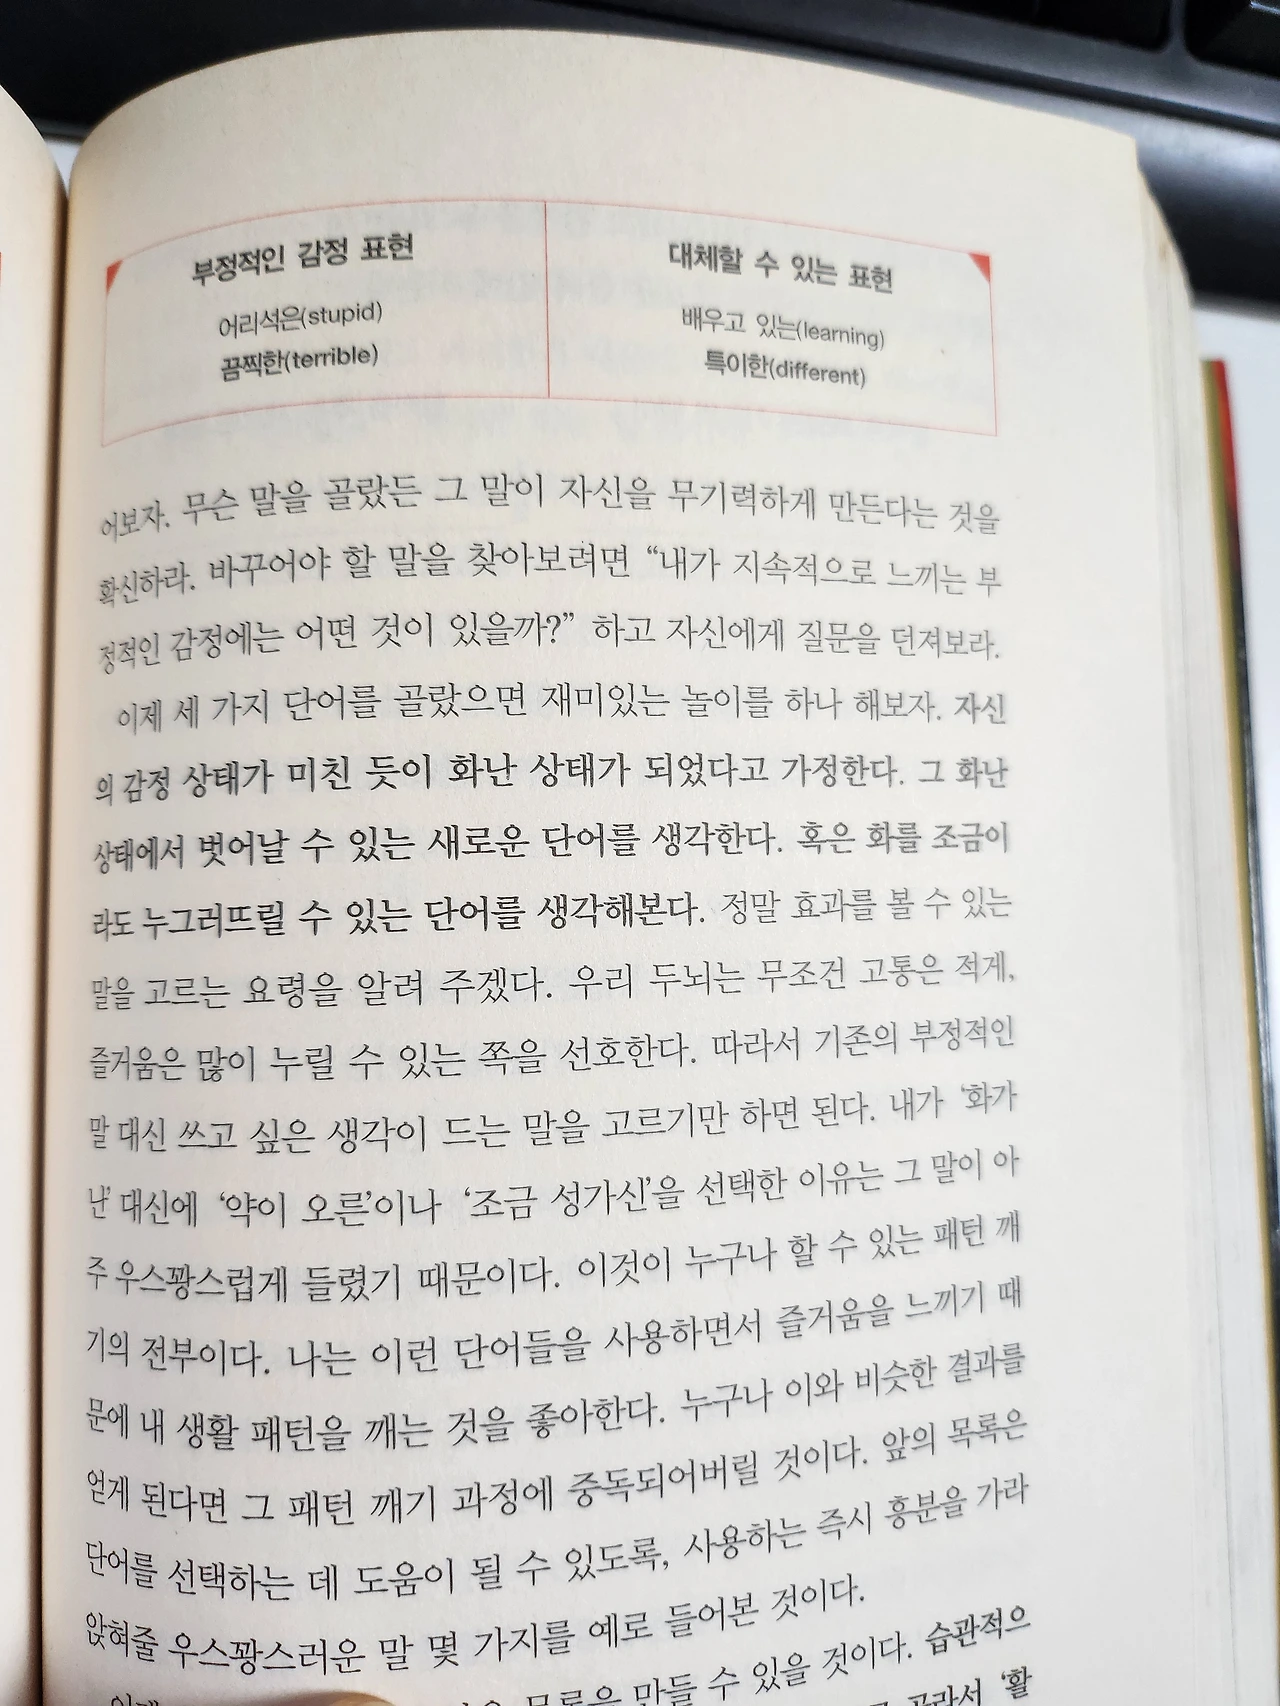 부정적인 감정 표현
어리석은(stupid)
끔찍한(terrible)
대체할 수 있는 표현
배우고 있는(learning)
특이한(different)
어보자. 무슨 말을 골랐든 그 말이 자신을 무기력하게 만든다는 것을
확신하라. 바꾸어야 할 말을 찾아보려면 “내가 지속적으로 느끼는 부
정적인 감정에는 어떤 것이 있을까?” 하고 자신에게 질문을 던져보라.
이제 세 가지 단어를 골랐으면 재미있는 놀이를 하나 해보자. 자신
의 감정 상태가 미친 듯이 화난 상태가 되었다고 가정한다. 그 화난
상태에서 벗어날 수 있는 새로운 단어를 생각한다. 혹은 화를 조금이
라도 누그러뜨릴 수 있는 단어를 생각해본다. 정말 효과를 볼 수 있는
말을 고르는 요령을 알려 주겠다. 우리 두뇌는 무조건 고통은 적게,
즐거움은 많이 누릴 수 있는 쪽을 선호한다. 따라서 기존의 부정적인
말 대신 쓰고 싶은 생각이 드는 말을 고르기만 하면 된다. 내가 ‘화가
난’ 대신에 ‘약이 오른’이나 ‘조금 성가신’을 선택한 이유는 그 말이 아
주 우스꽝스럽게 들렸기 때문이다. 이것이 누구나 할 수 있는 패턴 깨
기의 전부이다. 나는 이런 단어들을 사용하면서 즐거움을 느끼기 때
문에 내 생활 패턴을 깨는 것을 좋아한다. 누구나 이와 비슷한 결과를
얻게 된다면 그 패턴 깨기 과정에 중독되어버릴 것이다. 앞의 목록은
단어를 선택하는 데 도움이 될 수 있도록, 사용하는 즉시 흥분을 가라
앉혀줄 우스꽝스러운 말 몇 가지를 예로 들어본 것이다.
목록을 만들 수 있을 것이다. 습관적으
골라서 ‘활